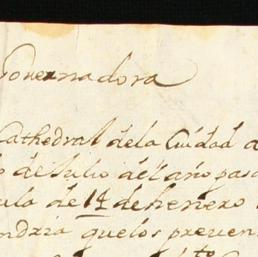 Governadora
Cathedral dela Ciudad
de Julio del año pas
de 14 de henero
quelos preven